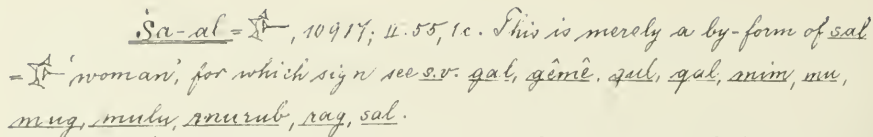 Ša-al = 𒊩, 10917; II. 55, 1c. This is merely a by-form of sal
= 𒊩 'woman', for which sign see s.v. gal, gêmê, gul, qal, mim, mu,
mug, mulu, murub, rag, sal.